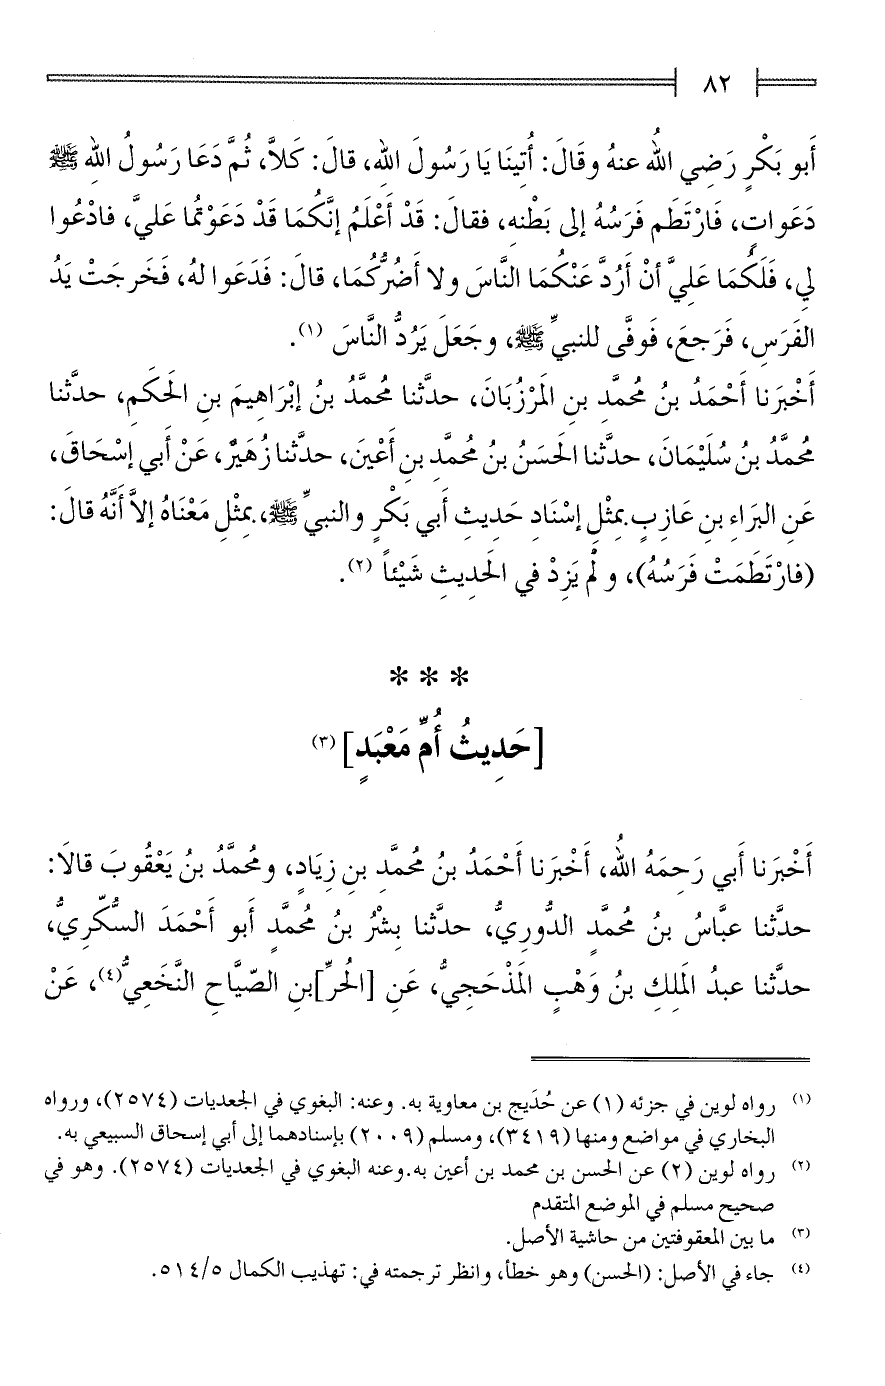 ٨٢
أَبو بَكْرٍ رَضِي اللهُ عنهُ وقَالَ: أُتِينَا يَا رَسُولَ اللهِ، قالَ: كَلاَّ، ثُمَّ دَعَا رَسُولُ اللهِ ﷺ
دَعَواتٍ، فَارْتَطَم فَرَسُهُ إلى بَطْنِهِ، فقالَ: قَدْ أَعْلَمُ إنَّكُمَا قَدْ دَعَوْتُما عَليَّ، فادْعُوا
لي، فَلَكُمَا عَليَّ أنْ أَرُدَّ عَنْكُمَا النَّاسَ ولا أَضُرُّكُمَا، قالَ: فَدَعَوا لهُ، فَخَرجَتْ يَدُ
الفَرَسِ، فَرَجعَ، فَوفَّى للنبيِّ ﷺ، وجَعَلَ يَرُدُّ النَّاسَ (١).
أَخْبَرَنا أَحْمَدُ بنُ مُحمَّدِ بنِ المَرْزُبَان، حدَّثنا مُحمَّدُ بنُ إبْرَاهِيمَ بنِ الحَكَمِ، حدَّثنا
مُحمَّدُ بنُ سُلَيْمَان، حدَّثنا الحَسَنُ بنُ مُحمَّدِ بنِ أَعْيَن، حدَّثنا زُهَيْرٌ، عَنْ أَبي إسْحَاقَ،
عَنِ البَرَاءِ بنِ عَازِبٍ.بِمثْلِ إسْنَادِ حَديثِ أَبي بَكْرٍ والنبيِّ ﷺ،.بِمثْلِ مَعْنَاهُ إلاَّ أنَّهُ قالَ:
(فارْتَطَمَتْ فَرَسُهُ)، ولَمْ يَزِدْ في الحَدِيثِ شَيْئاً (٢).
* * *
[حَدِيثُ أُمِّ مَعْبَدٍ] (٣)
أَخْبَرَنا أَبي رَحِمَهُ اللهُ، أَخْبَرَنا أَحْمَدُ بنُ مُحمَّدِ بنِ زِيَادٍ، ومُحمَّدُ بنُ يَعْقُوبَ قالَا:
حدَّثنا عبَّاسُ بنُ مُحمَّدٍ الدُّورِيُّ، حدَّثنا بِشْرُ بنُ مُحمَّدٍ أبو أَحْمَدَ السُّكّرِيُّ،
حدَّثنا عبدُ المَلِكِ بنُ وَهْبٍ المَذْحَجِيُّ، عَنِ [الحُرِّ]بنِ الصَّيَّاحِ النَّخَعِيُّ(٤)، عَنْ
(١) رواه لوين في جزئه (١) عن حُدَيج بن معاوية به. وعنه: البغوي في الجعديات (٢٥٧٤)، ورواه
البخاري في مواضع ومنها (٣٤١٩)، ومسلم (٢٠٠٩) بإسنادهما إلى أبي إسحاق السبيعي به.
(٢) رواه لوين (٢) عن الحسن بن محمد بن أعين به.وعنه البغوي في الجعديات (٢٥٧٤). وهو في
صحيح مسلم في الموضع المتقدم
(٣) ما بين المعقوفتين من حاشية الأصل.
(٤) جاء في الأصل: (الحسن) وهو خطأ، وانظر ترجمته في: تهذيب الكمال ٥/٥١٤.